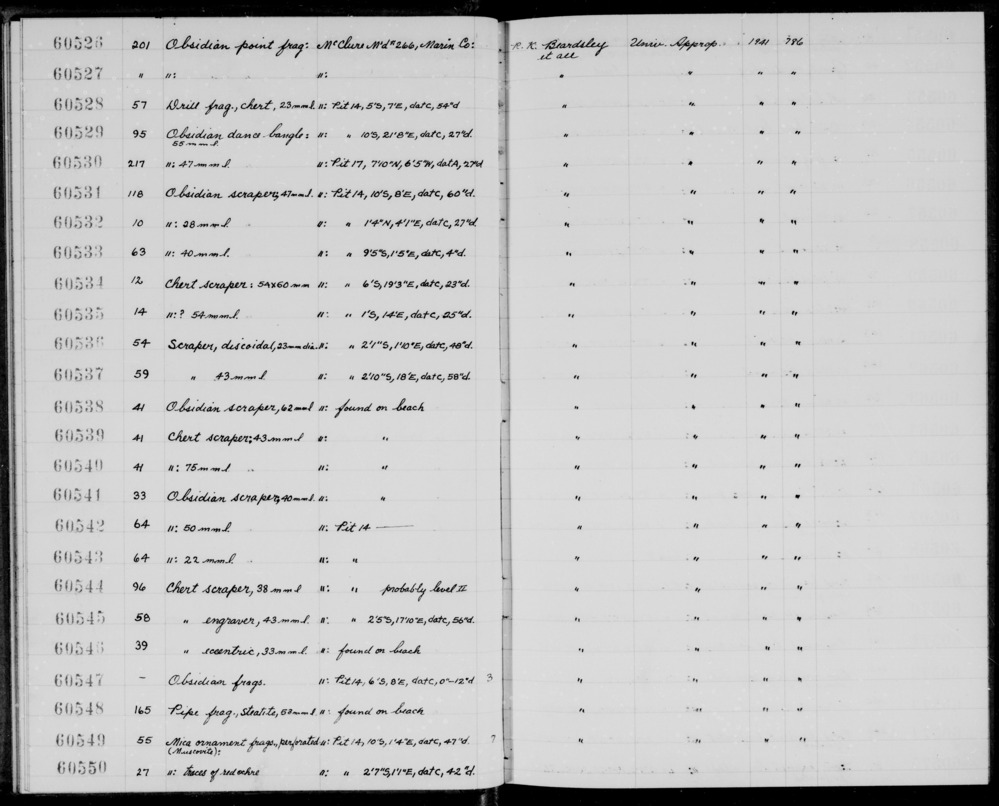 60526 201 Obsidian point frag: McClure M'd #266, Marin Co: R. K. Beardsley et all Univ. Approp. 1941 786
60527 " ": ": " " " "
60528 57 Drill frag., chert, 23mm l ": Pit 14, 5'S, 7'E, dat C, 54"d " " " "
60529 95 Obsidian dance bangle: 55 mm l. ": " 10'S, 21'8"E, dat C, 27"d. " " " "
60530 217 ": 47 mm l. ": Pit 17, 7'10"N, 6'5"W, dat A, 27"d " " " "
60531 118 Obsidian scraper; 47mm l. ": Pit 14, 10'S, 8'E, dat C, 60"d. " " " "
60532 10 ": 38 mm l. ": " 1'4"N, 4'1"E, dat C, 27"d. " " " "
60533 63 ": 40 mm l. ": " 9'5"S, 1'5"E, dat C, 4"d. " " " "
60534 12 Chert scraper: 54x60 mm ": " 6'S, 19'3"E, dat C, 23"d. " " " "
60535 14 ": ? 54 mm l. ": " 1'S, 14'E, dat C, 25"d. " " " "
60536 54 Scraper, discoidal, 23mm dia. ": " 2'1"S, 1'10"E, dat C, 48"d. " " " "
60537 59 " 43 mm l ": " 2'10"S, 18'E, dat C, 58"d. " " " "
60538 41 Obsidian scraper, 62 mm l ": found on beach " " " "
60539 41 Chert scraper; 43 mm l ": " " " " "
60540 41 ": 75 mm l ": " " " " "
60541 33 Obsidian scraper, 40 mm l. ": " " " " "
60542 64 ": 50 mm l ": Pit 14 — " " " "
60543 64 ": 22 mm l. ": " " " " "
60544 96 Chert scraper, 38 mm l ": " probably level II " " " "
60545 58 " engraver, 43 mm l. ": " 2'5"S, 17'10"E, dat C, 56"d. " " " "
60546 39 " eccentric, 33 mm l. ": found on beach " " " "
60547 – Obsidian frags. ": Pit 14, 6'S, 8'E, dat C, 0"–12"d 3 " " " "
60548 165 Pipe frag., Steatite, 53 mm l. ": found on beach " " " "
60549 55 Mica ornament frags., perforated (Muscovite): ": Pit 14, 10'S, 1'4"E, dat C, 47"d. 7 " " " "
60550 27 ": traces of red ochre ": " 2'7"S, 1'1"E, dat C, 42"d. " " " "